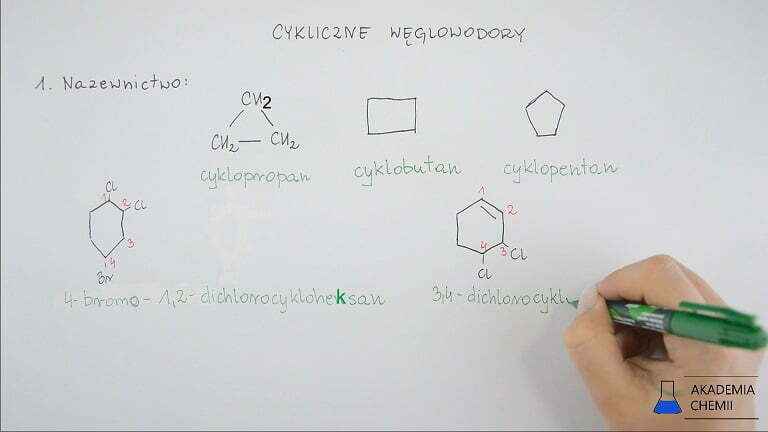 CYKLICZNE WĘGLOWODORY
1. Nazewnictwo:
CH2
CH2 CH2
cyklopropan cyklobutan cyklopentan
Cl
1 2 Cl
3
4
Br
1
2
3 Cl
4
Cl
4-bromo-1,2-dichlorocykloheksan
3,4-dichlorocykl
AKADEMIA
CHEMII